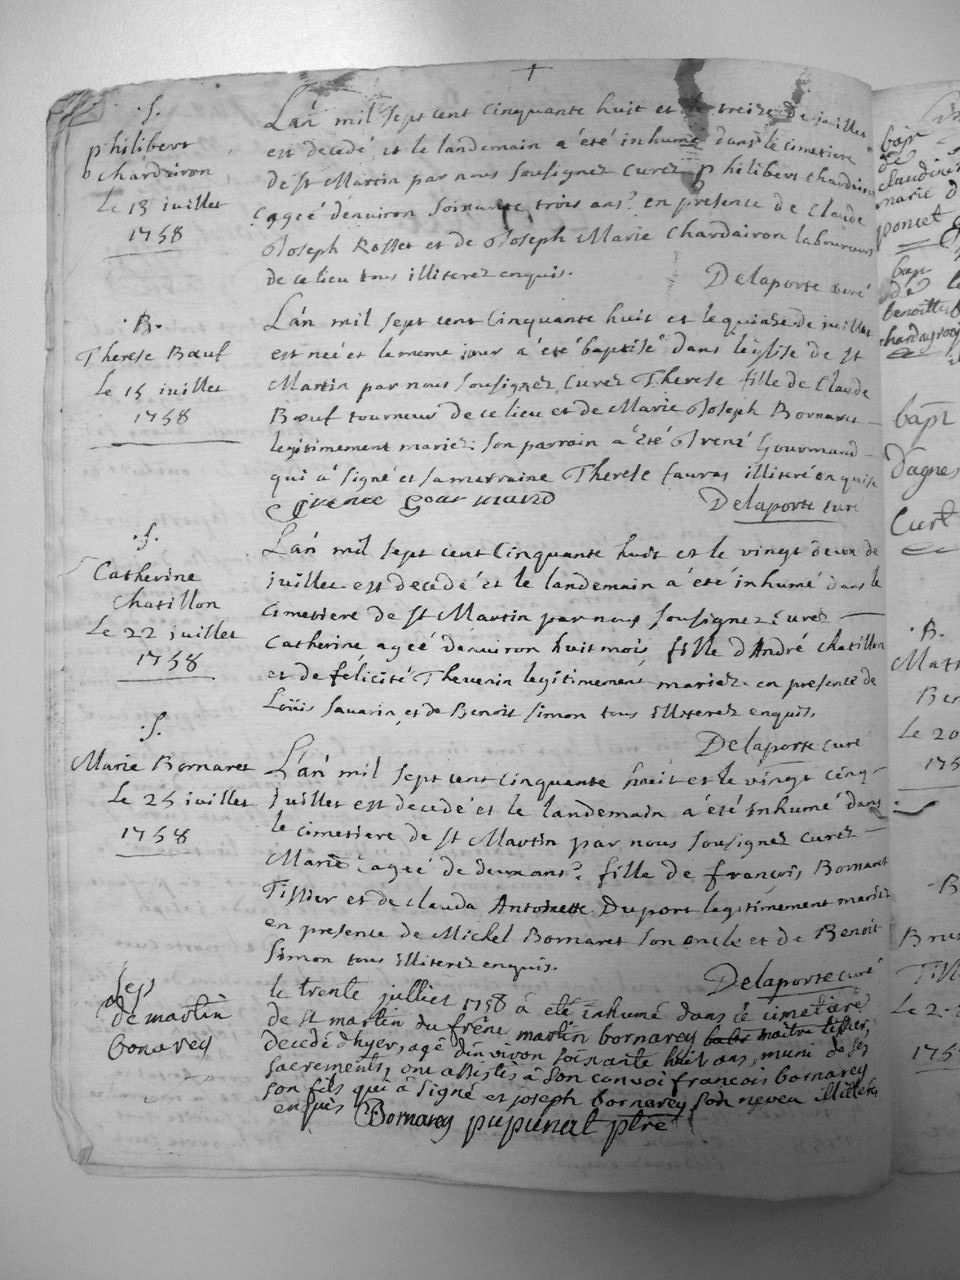 .S.
philibert
chardairon
Le 13 juillet
1758
L'an mil sept cent Cinquante huit et le treize de juillet
est decedé et le landemain a été inhumé dans le cimetiere
de St Martin par nous Sousignez Curez philibert chardairon
agée d'environ Soixante trois ans en presence de Claude
Joseph Rosset et de Joseph Marie Chardairon laboureurs
de ce lieu tous illiterez enquis.
Delaporte curé
.B.
Therese Bœuf
Le 15 juillet
1758
L'an mil sept cent Cinquante huit et le quinze de juillet
est neé et le meme jour a été baptisé dans l'église de St
Martin par nous Sousignez Curez Therese fille de Claude
Bœuf tourneur de ce lieu et de Marie Joseph Bornarer
legitimement mariez: Son parrain a été Irené Gourmand
qui a signé et sa marraine Therese fauras illiteré enquise
Irenee Gourmand
Delaporte curé
.S.
Catherine
Chatillon
Le 22 juillet
1758
L'an mil sept cent Cinquante huit et le vingt deux de
juillet est decedé et le landemain a été inhumé dans le
Cimetiere de St Martin par nous Sousignez Curez
Catherine agée d'environ huit mois fille d'André chatillon
et de félicité Thevenin legitimement mariez en presence de
Loüis Savarin et de Benoit Simon tous illiterez enquis.
Delaporte curé
.S.
Marie Bornaret
Le 25 juillet
1758
L'an mil sept cent cinquante huit et le vingt cinq
juillet est decedé et le landemain a été inhumé dans
le cimetiere de St Martin par nous Sousignez Curez
Marie agée de deux ans fille de françois Bornaret
Tissier et de Clauda Antoinette Duport legitimement mariez
en presence de Michel Bornaret Son oncle et de Benoit
Simon tous illiterez enquis.
Delaporte curé
Sep
de martin
bonarey
le trente julliet 1758 à été inhumé dans le cimetière
de st martin du frêne martin bornarey maître tissier,
decedé d'hyer, agé d'environ soixante huit ans, muni de ses
sacrements, ont assistés à son convoi francois bornarey
son fils qui à signé et joseph bornarey son neveu illiteré
enquis
Bornarey pupunat ptre
bapt
de
claudine
marie d
poncet
bap
de
benoitte
chardayron
bapt
d'agnes
Curt
.B.
Le 20
175
B
Le 2
175